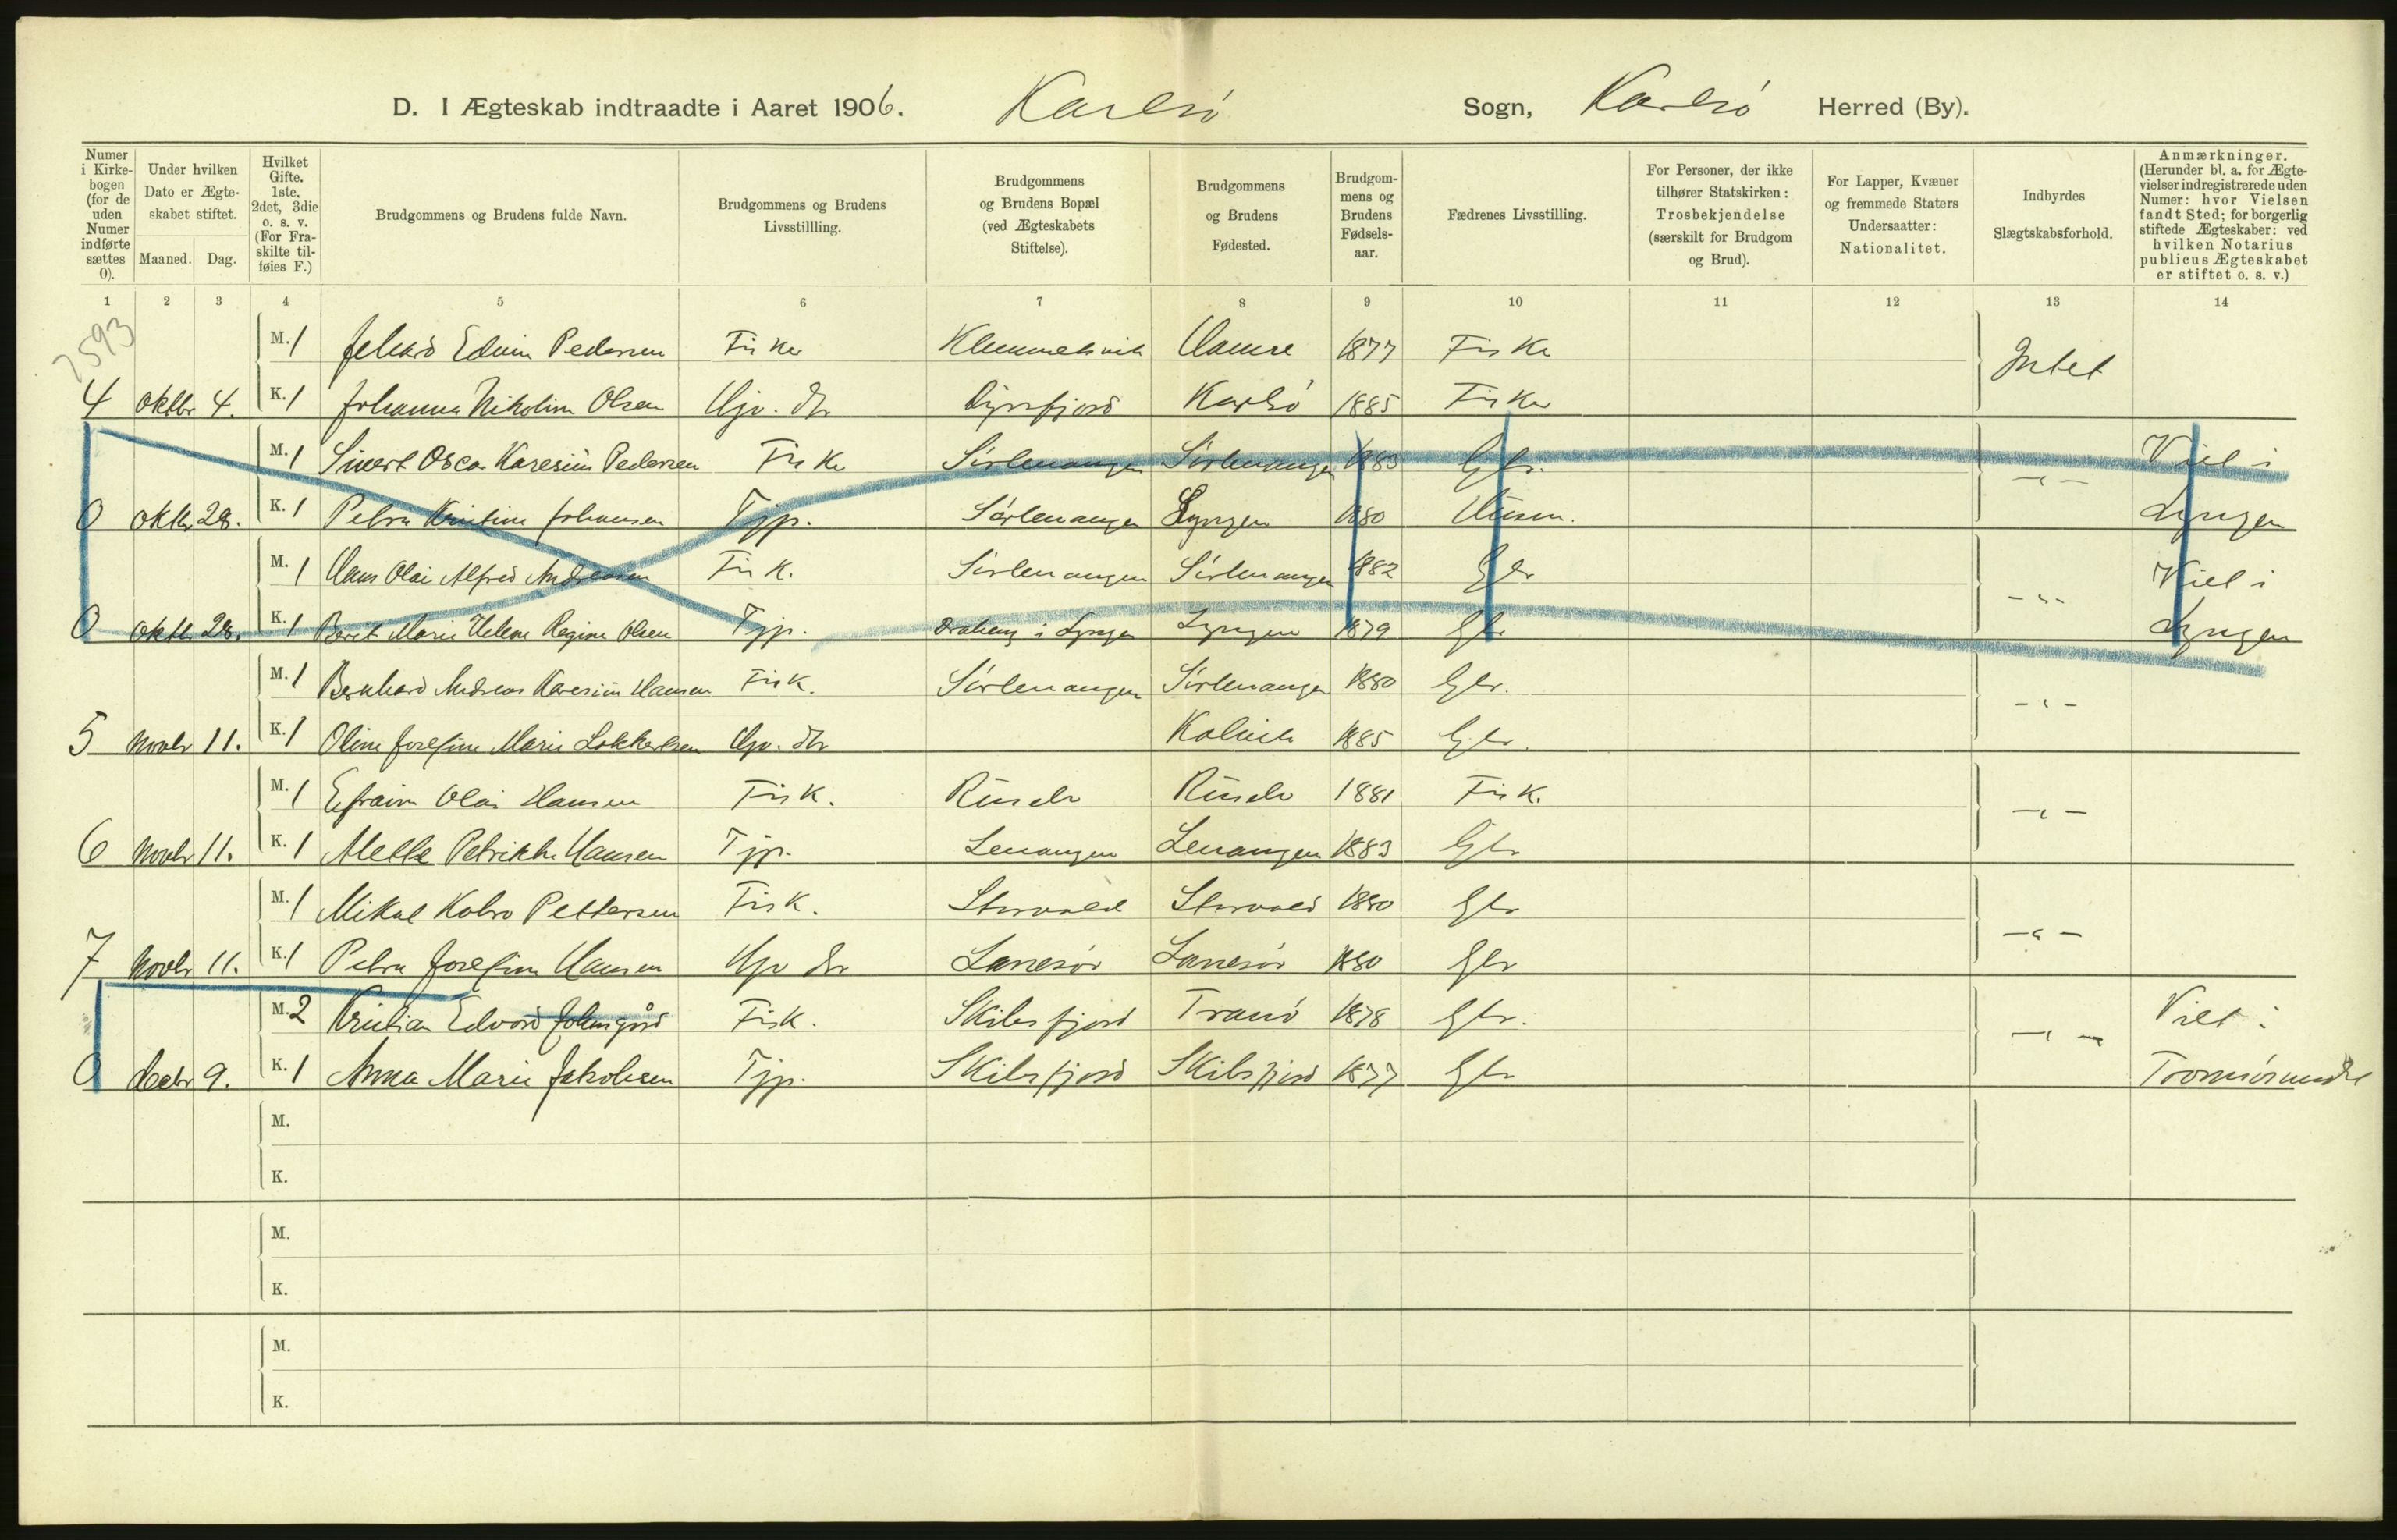 D. I Ægteskab indtraadte i Aaret 1906. Karlsö Sogn, Karlsö Herred (By).
Numer i Kirkebogen (for de uden Numer indførte sættes 0).
Under hvilken Dato er Ægteskabet stiftet.
Maaned. Dag.
Hvilket Gifte. 1ste, 2det, 3die o. s. v. (For Fraskilte tilføies F.)
Brudgommens og Brudens fulde Navn.
Brudgommens og Brudens Livsstillling.
Brudgommens og Brudens Bopæl (ved Ægteskabets Stiftelse).
Brudgommens og Brudens Fødested.
Brudgommens og Brudens Fødselsaar.
Fædrenes Livsstilling.
For Personer, der ikke tilhører Statskirken: Trosbekjendelse (særskilt for Brudgom og Brud).
For Lapper, Kvæner og fremmede Staters Undersaatter: Nationalitet.
Indbyrdes Slægtskabsforhold.
Anmærkninger. (Herunder bl. a. for Ægtevielser indregistrerede uden Numer: hvor Vielsen fandt Sted; for borgerlig stiftede Ægteskaber: ved hvilken Notarius publicus Ægteskabet er stiftet o. s. v.)
1 2 3 4 5 6 7 8 9 10 11 12 13 14
2593
M. 1 Edvin Pedersen Fisker 1877 Fisker Intet
4 oktbr 4. K. 1 Johanna Nikoline Olsen Hjv. dtr Karlsö 1885 Fisker
M. 1 Sivert Oscar Karesius Pedersen Fisker Sörlenangen Sörlenangen 1883 Gbr. Viel i
0 oktbr 28. K. 1 Petra Kristine Johansen Tjp. Sörlenangen Lyngen 1880 Husm. -"- Lyngen
M. 1 Hans Olai Alfred Andreasen Fisk. Sörlenangen Sörlenangen 1882 Gbr Viel i
0 oktbr 28. K. 1 Berit Marie Helene Regine Olsen Tjp. i Lyngen Lyngen 1879 Gbr -"- Lyngen
M. 1 Bernhard Andreas Karesius Hansen Fisk. Sörlenangen Sörlenangen 1880 Gbr.
5 novbr 11. K. 1 Oline Josefine Marie Hjv. dtr 1885 Gbr. -"-
M. 1 Efraim Olai Hansen Fisk. 1881 Fisk.
6 novbr 11. K. 1 Mette Petrikke Hansen Tjp. Lenangen Lenangen 1883 Gbr -"-
M. 1 Mikal Kobro Pettersen Fisk. Stervoald 1880 Gbr
7 novbr 11. K. 1 Petra Josefine Hansen Hjv dtr Lanesör Lanesör 1880 Gbr -"-
M. 2 Kristian Edvard Johngård Fisk. Skibsfjord Tranö 1878 Gbr. Viet i
0 decbr 9. K. 1 Anna Marie Jakobsen Tjp. Skibsfjord Skibsfjord 1877 Gbr -"- Tromsösundet
M.
K.
M.
K.
M.
K.